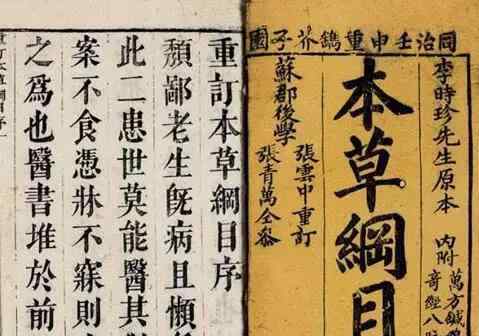 同治壬申重鐫芥子園
李時珍先生原本
內附
萬方鍼
奇經八
本草綱目
張雲中重訂
蘇郡後學
張青萬仝參
重訂本草綱目序
頽鄙老生旣病且懶
此二患世莫能醫其
案不食憑牀不寐則
之爲也醫書堆於前